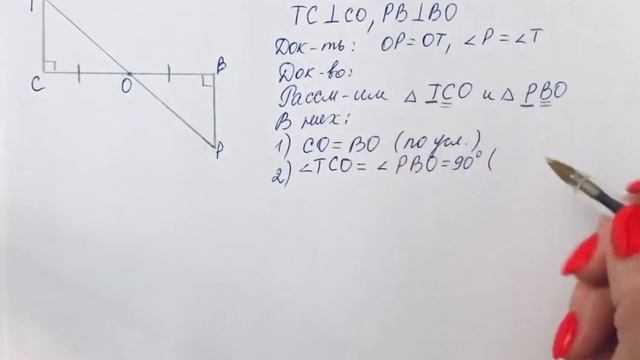 TC⊥CO, PB⊥BO
Док-ть: OP=OT, ∠P=∠T
Док-во:
Рассм-им △ TCO и △ PBO
В них:
1) CO=BO (по усл.)
2) ∠TCO=∠PBO=90° (
C
O
B
P